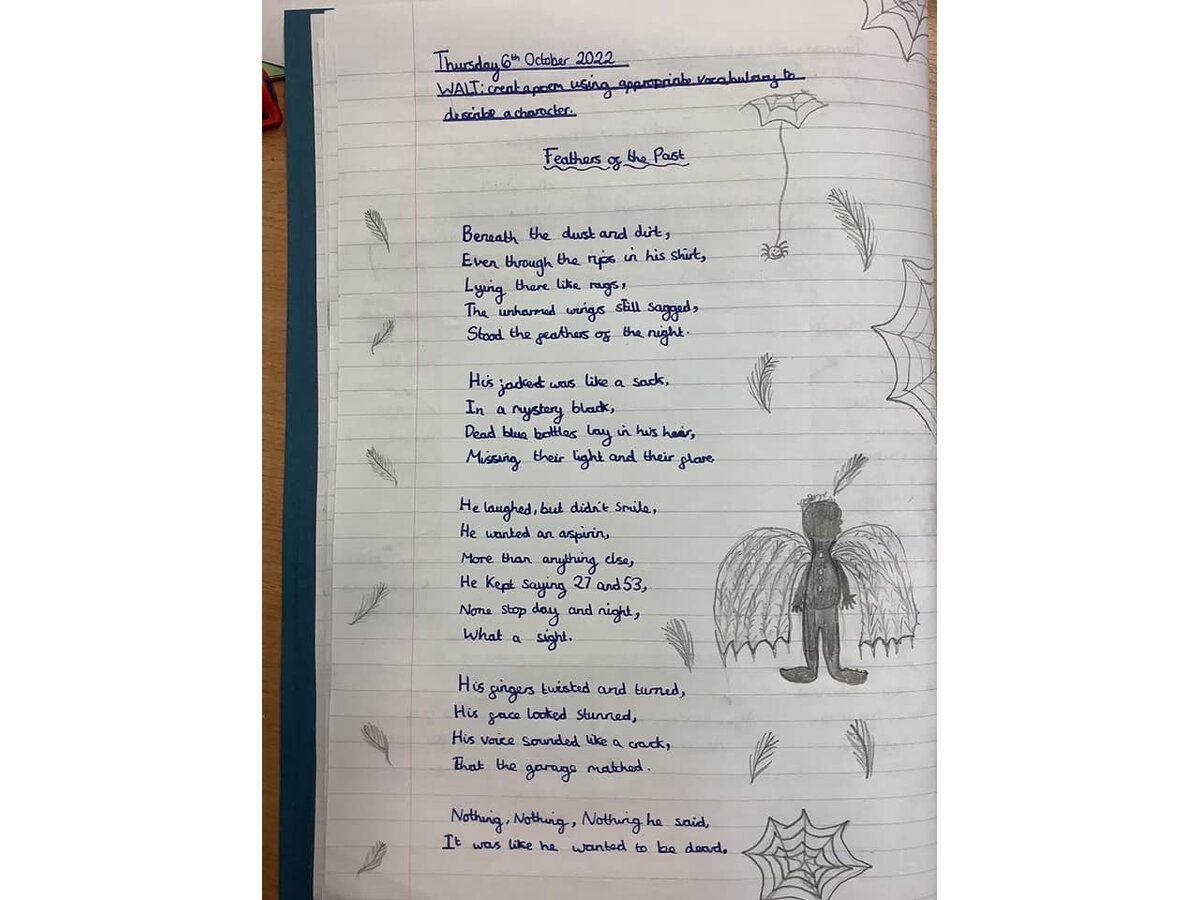 Thursday 6th October 2022
WALT: create a poem using appropriate vocabulary to
describe a character.
Feathers of the Past
Beneath the dust and dirt,
Even through the rips in his shirt,
Lying there like rags,
The unharmed wings still sagged,
Stood the feathers of the night.
His jacket was like a sack,
In a mystery black,
Dead blue bottles lay in his hair,
Missing their light and their glare
He laughed, but didn't smile,
He wanted an aspirin,
More than anything else,
He kept saying 27 and 53,
None stop day and night,
What a sight.
His fingers twisted and turned,
His face looked stunned,
His voice sounded like a crack,
That the garage matched.
Nothing, Nothing, Nothing he said,
It was like he wanted to be dead.